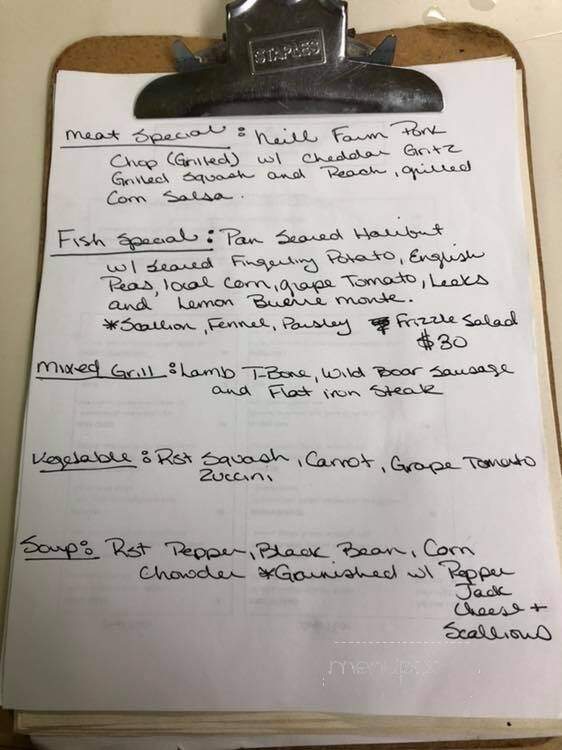 STAPLES
Meat Special: Neill Farm Pork
Chop (Grilled) w/ Cheddar Gritz
Grilled Squash and Peach, grilled
Corn Salsa.
Fish Special: Pan Seared Halibut
w/ Seared Fingerling Potato, English
Peas, local Corn, grape Tomato, Leeks
and Lemon Buerre monte.
*Scallion, Fennel, Parsley Frizzle Salad
$30
Mixed Grill: Lamb T-Bone, Wild Boar Sausage
and Flat iron Steak
Vegetable: Rst Squash, Carrot, Grape Tomato
Zuccini,
Soup: Rst Pepper, Black Bean, Corn
Chowder *Garnished w/ Pepper
Jack
Cheese +
Scallions